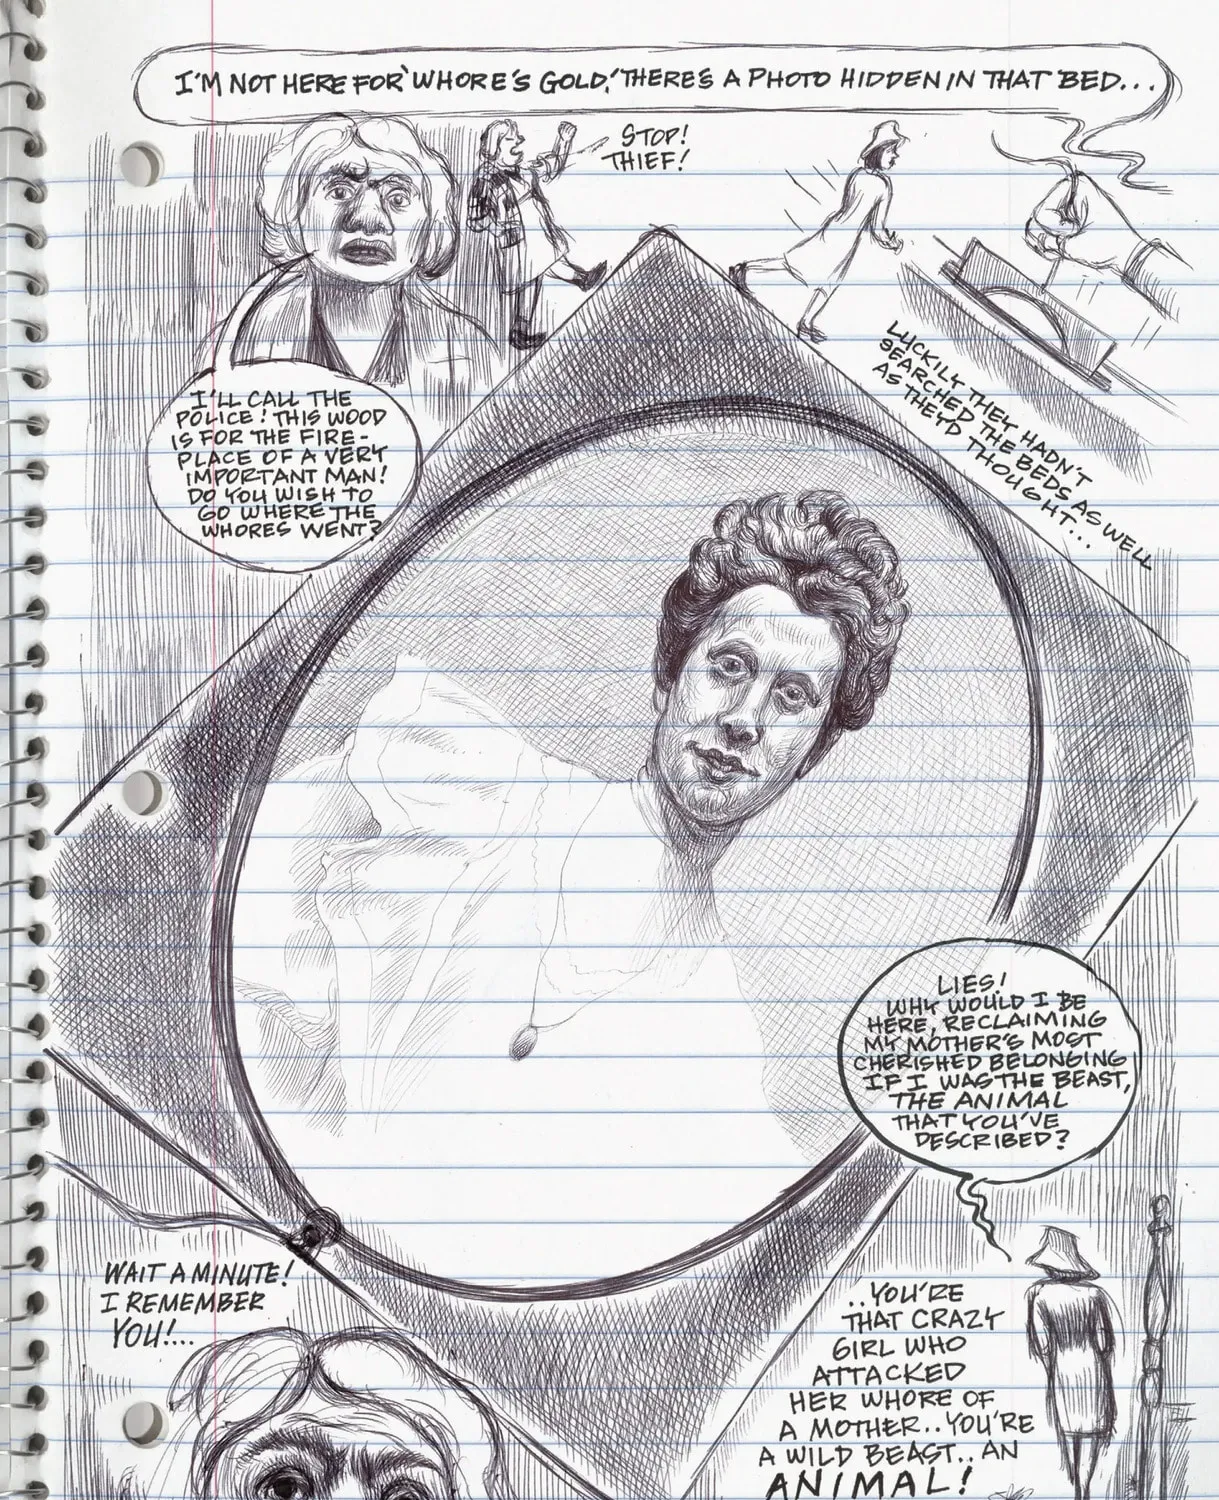 I'M NOT HERE FOR 'WHORE'S GOLD,' THERE'S A PHOTO HIDDEN IN THAT BED...
STOP!
THIEF!
LUCKILY THEY HADN'T
SEARCHED THE BEDS AS WELL
AS THEY'D THOUGHT...
I'LL CALL THE
POLICE! THIS WOOD
IS FOR THE FIRE-
PLACE OF A VERY
IMPORTANT MAN!
DO YOU WISH TO
GO WHERE THE
WHORES WENT?
LIES!
WHY WOULD I BE
HERE, RECLAIMING
MY MOTHER'S MOST
CHERISHED BELONGING
IF I WAS THE BEAST,
THE ANIMAL
THAT YOU'VE
DESCRIBED?
WAIT A MINUTE!
I REMEMBER
YOU!...
..YOU'RE
THAT CRAZY
GIRL WHO
ATTACKED
HER WHORE OF
A MOTHER..YOU'RE
A WILD BEAST..AN
ANIMAL!